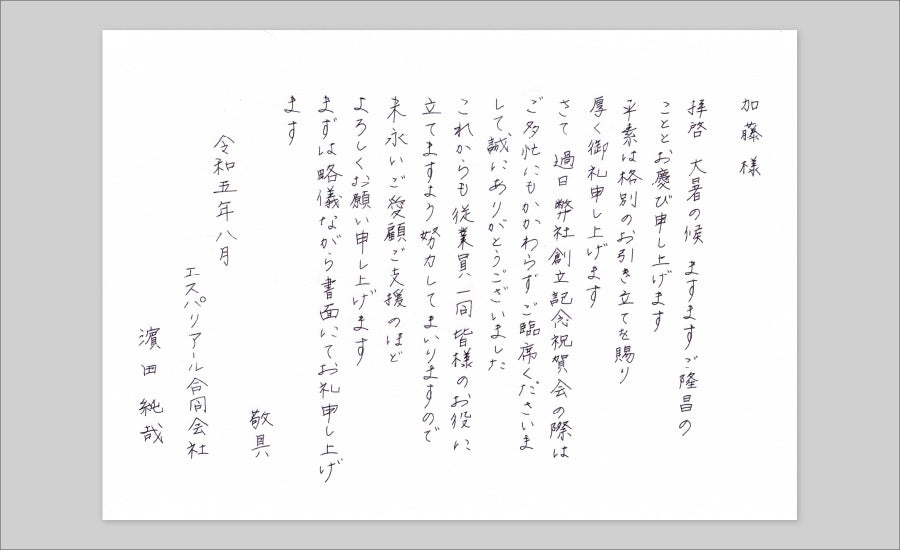 加藤様
拝啓 大暑の候 ますますご隆昌の
こととお慶び申し上げます
平素は格別のお引き立てを賜り
厚く御礼申し上げます
さて 過日弊社創立記念祝賀会の際は
ご多忙にもかかわらずご臨席くださいま
して、誠にありがとうございました
これからも従業員一同皆様のお役に
立てますよう努力してまいりますので
末永いご愛顧ご支援のほど
よろしくお願い申し上げます
まずは略儀ながら書面にてお礼申し上げ
ます
敬具
令和五年八月
エスパリアール合同会社
濱田純哉